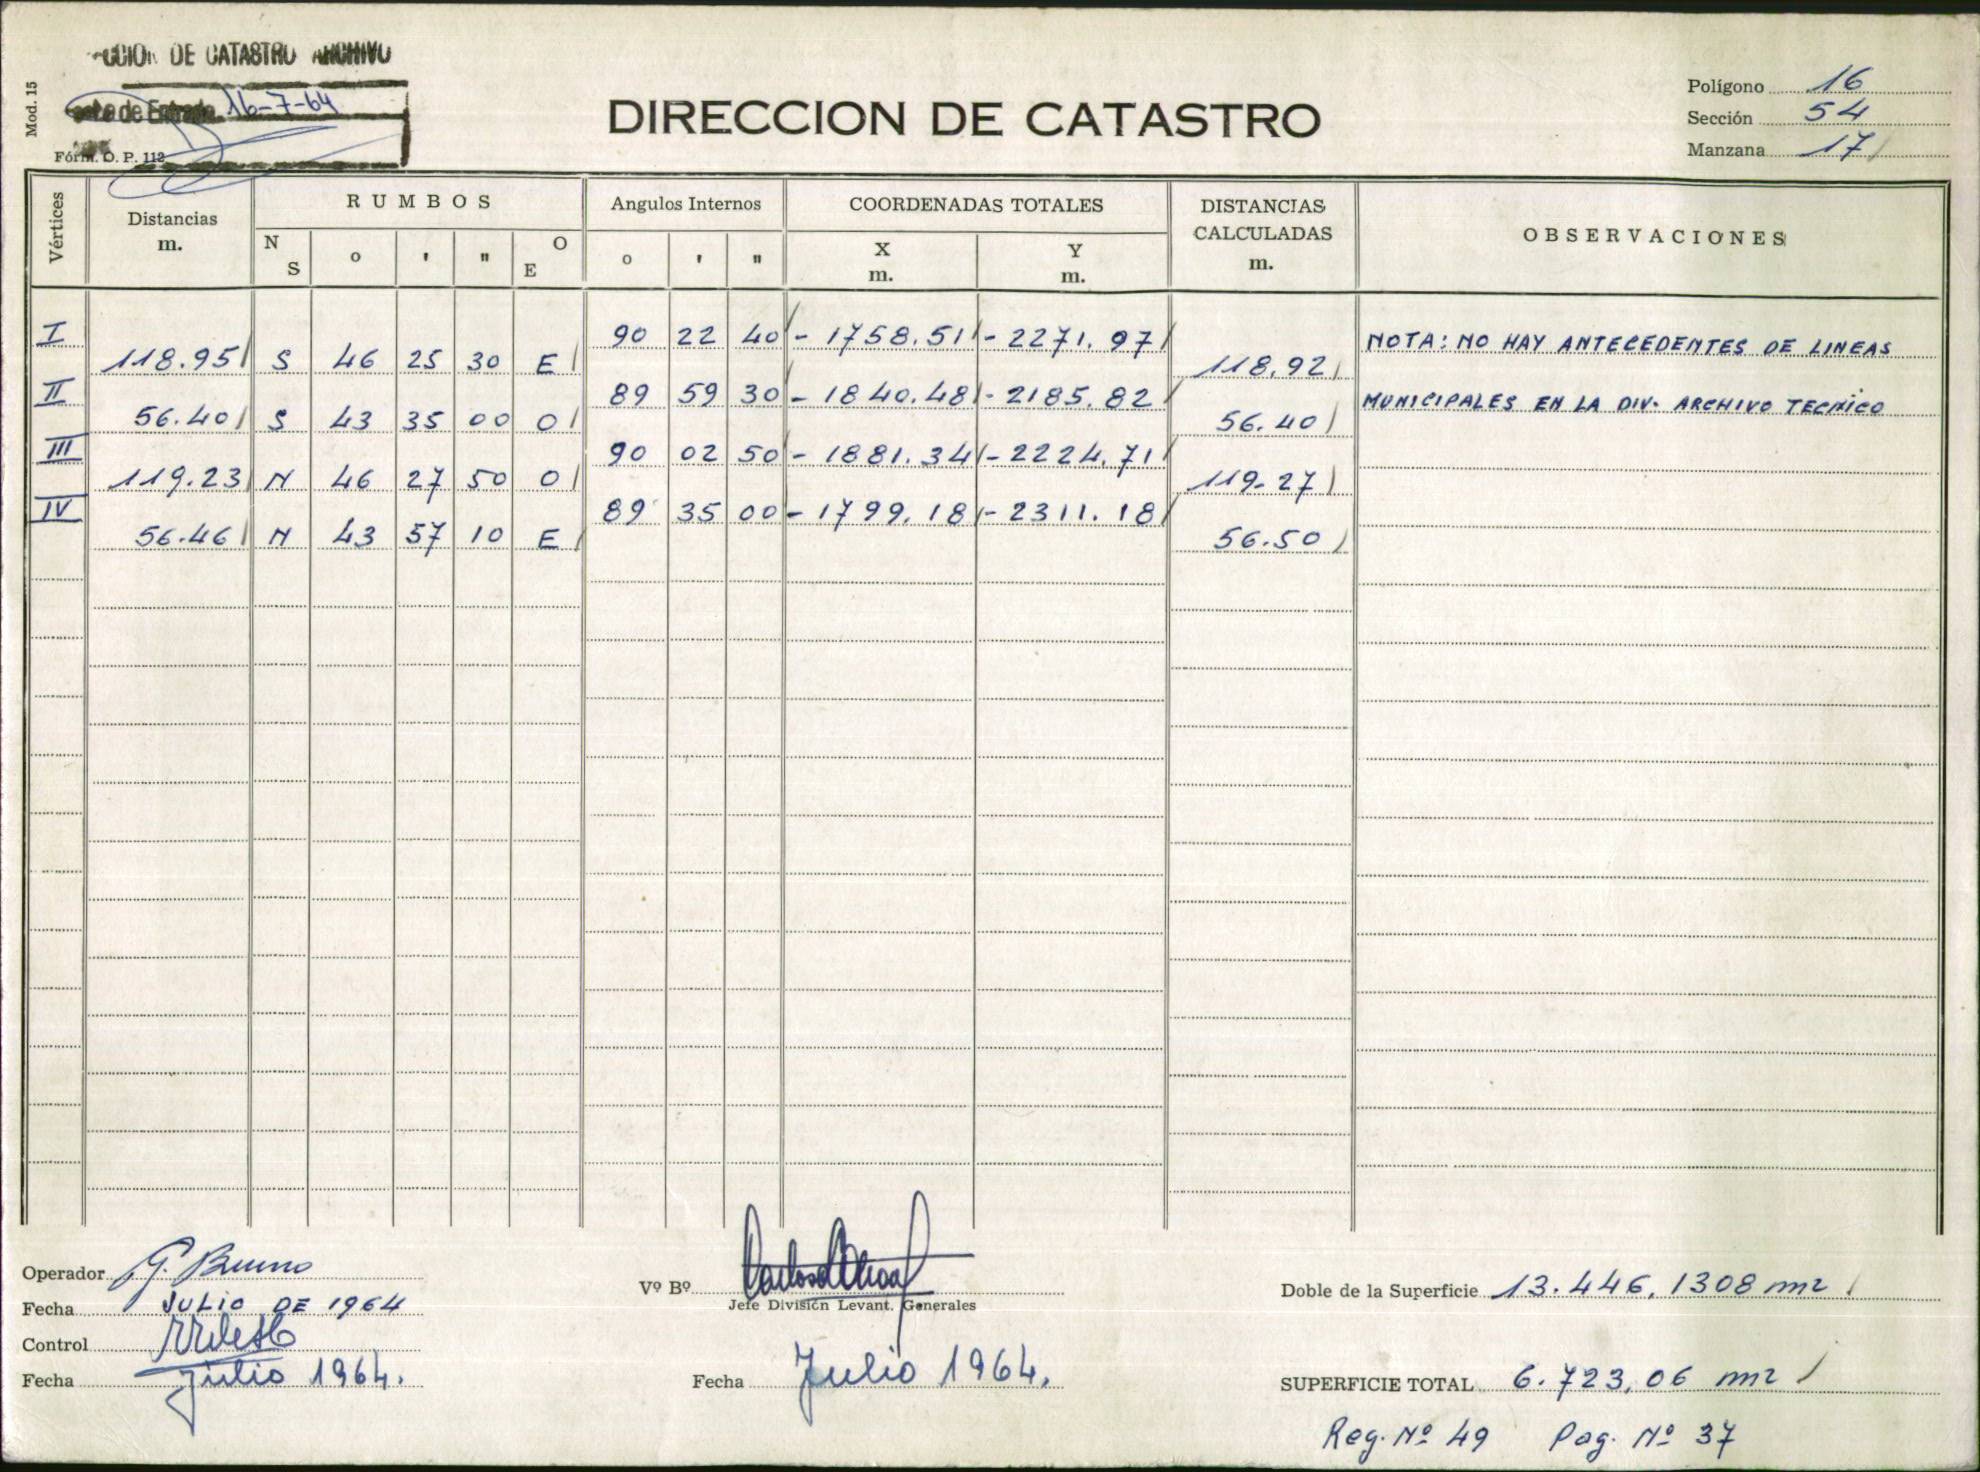 DE CATASTRO ARCHIVO
de Entrada 16-7-64
Mod. 15
Fórm. O. P. 112
DIRECCION DE CATASTRO
Polígono 16
Sección 54
Manzana 17
Vértices
Distancias m.
RUMBOS
N S o ' " E O
Angulos Internos
o ' "
COORDENADAS TOTALES
X m. Y m.
DISTANCIAS CALCULADAS m.
OBSERVACIONES
I 90 22 40 - 1758.51 - 2271.97
118.95 S 46 25 30 E 118.92
NOTA: NO HAY ANTECEDENTES DE LINEAS
II 89 59 30 - 1840.48 - 2185.82
56.40 S 43 35 00 O 56.40
MUNICIPALES EN LA DIV. ARCHIVO TECNICO
III 90 02 50 - 1881.34 - 2224.71
119.23 N 46 27 50 O 119.27
IV 89 35 00 - 1799.18 - 2311.18
56.46 N 43 57 10 E 56.50
Operador G. Bruno
Fecha JULIO DE 1964
Control
Fecha julio 1964.
Vº Bº
Jefe División Levant. Generales
Fecha Julio 1964.
Doble de la Superficie 13.446,1308 m2
SUPERFICIE TOTAL 6.723,06 m2
Reg. Nº 49 Pag. Nº 37